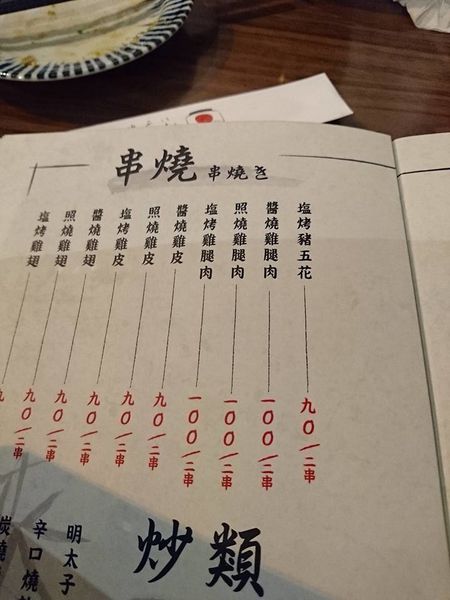 串燒 串燒き
塩烤豬五花 九0/二串
醬燒雞腿肉 一00/二串
照燒雞腿肉 一00/二串
塩烤雞腿肉 一00/二串
醬燒雞皮 九0/二串
照燒雞皮 九0/二串
塩烤雞皮 九0/二串
醬燒雞翅 九0/二串
照燒雞翅 九0/二串
塩烤雞翅
炒類
明太子
辛口燒
炭燒